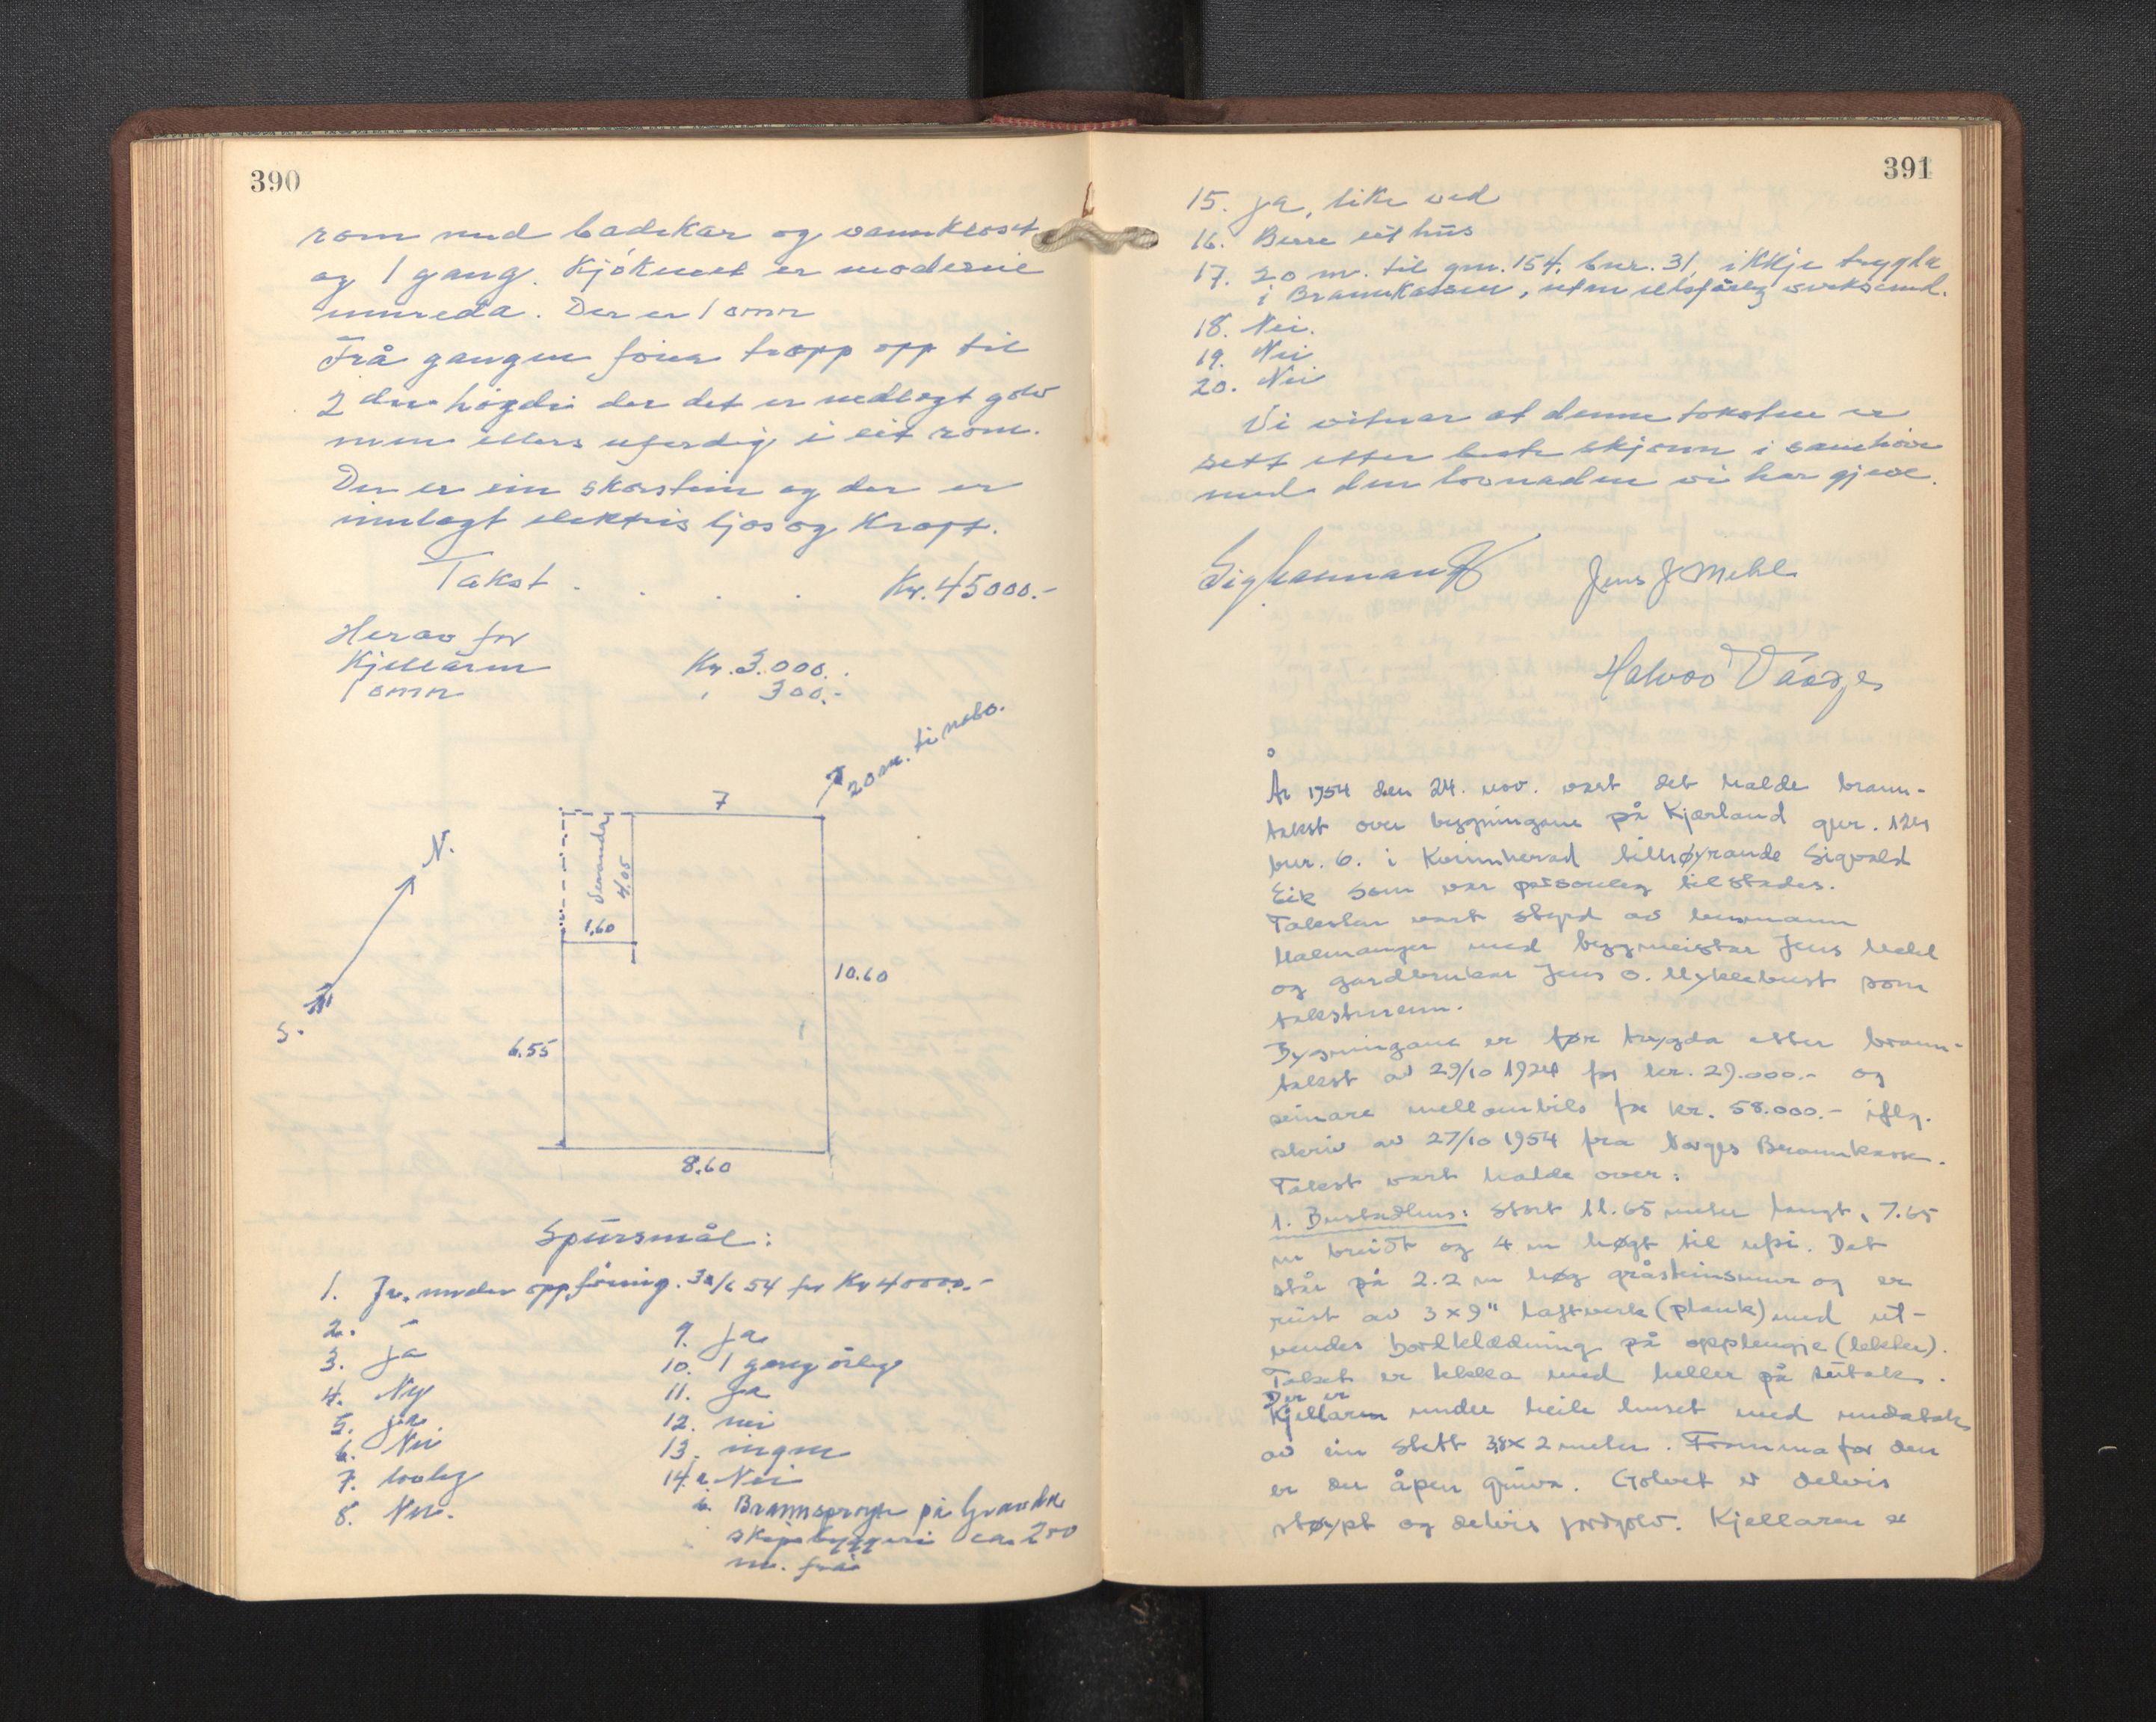 390
rom med badekar og vannkloset
og 1 gang. Kjøkenet er moderne
innreda. Der er 1 omn
Frå gangen fører tropp opp til
2 dre høgdi der det er nedlagt golv
men ellers uferdig i eit rom.
Der er ein skorstein og der er
innlagt elektris ljos og Kraft.
Takst . . . . Kr. 45000.-
Herav for
Kjellaren Kr. 3.000.-
1 omn " 300.-
20 m. til nabo.
7
N.
Veranda
4,05
1,60
10.60
S.
6.55
8,60
Spursmål:
1. Ja, under oppføring. 30/6 54 for Kr 40000.-
2. -
3. Ja
4. Ny
5. ja
6. Nei
7. lovleg
8. Nei.
9. Ja
10. 1 gang årleg
11. Ja
12. nei
13. ingen
14. a. Nei
b. Brannsprøyte på
skipsbyggeri ca 200
m. frå
391
15. Ja, like ved
16. Berre eit hus
17. 20 m. til gnr. 154, bnr. 31, ikkje trygda
i Brannkassen, uten eldsfårleg verksemd.
18. Nei.
19. Nei
20. Nei
Vi vitnar at denne taksten er
sett etter beste skjønn i samhøve
med den lovnaden vi har gjeve.
Jens J Mehl
Halvor
År 1954 den 24. nov. vart det halde brann-
takst over bygningane på Kjærland gnr. 124
bnr. 6. i Kvinnherad tilhøyrande Sigvald
Eik som var personleg tilstades.
Taksten vart styrd av lensmann
Malmanger med byggmeistar Jens Mehl
og gardbrukar Jens O. Myklebust som
takstmenn.
Bygningane er før trygda etter brann-
takst av 29/10 1924 for kr. 29.000.- og
seinare mellombils for kr. 58.000.- iflg.
skriv av 27/10 1954 fra Norges Brannkasse.
Takst vart halde over:
1. Bustadhus: Stort 11.65 meter langt, 7.65
m breidt og 4 m høgt til upsi. Det
står på 2.2 m høg gråsteinsmur og er
reist av 3 x 9" laftverk (plank) med ut-
vendes bordklædning på opplengje (lekter).
Taket er tekka med heller på sutak.
Der er
Kjellaren under heile huset med
av ein slett 3,8 x 2 meter. Framma for den
er der åpen gruva. Golvet er delvis
støypt og delvis jordgolv. Kjellaren er